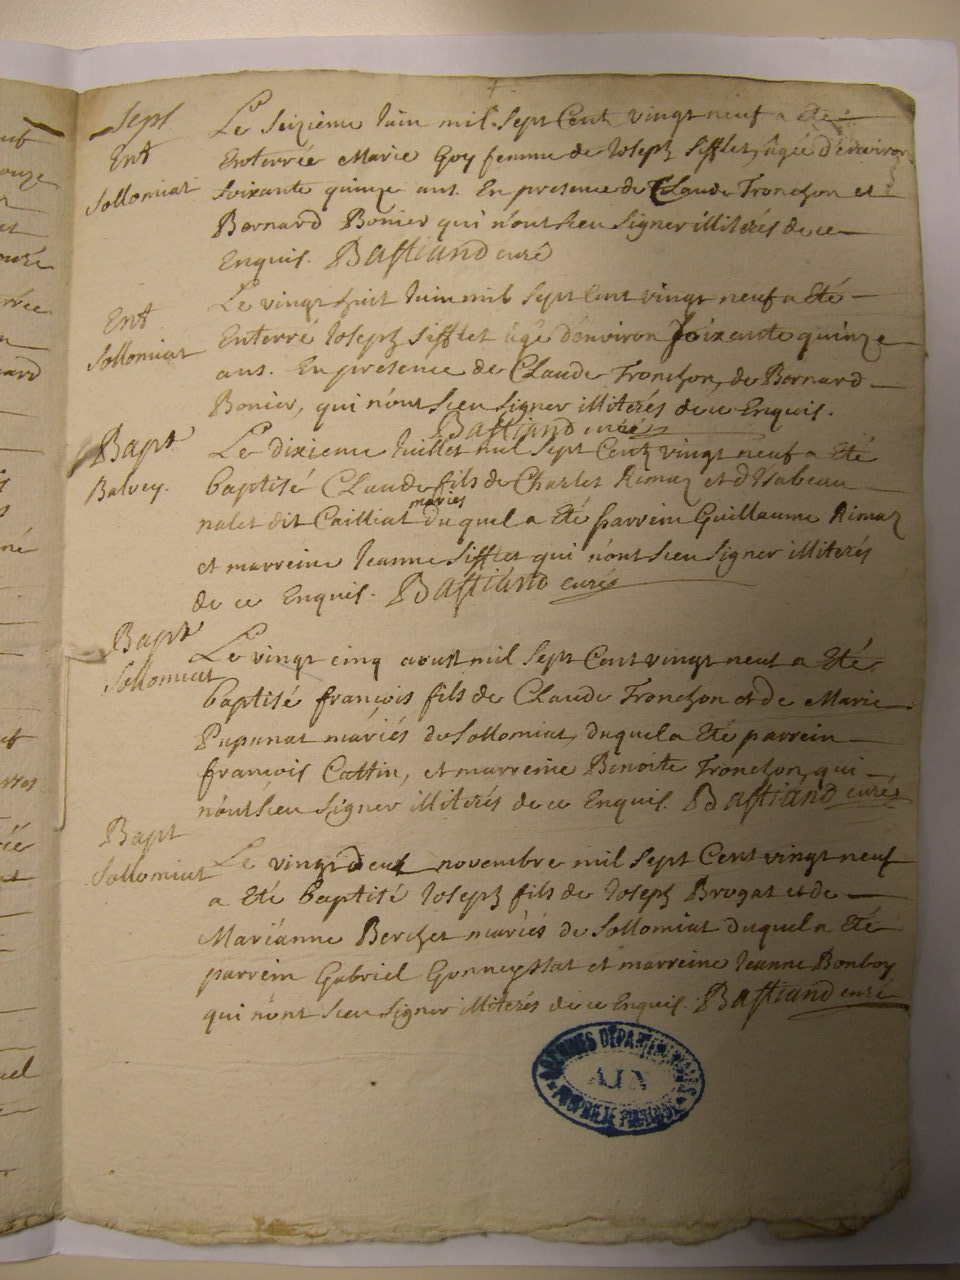 Sept
Ent
Sollomiat
Le seizieme Juin mil Sept Cent vingt neuf a Eté
Enterrée Marie Goy femme de Joseph Sifflet, âgée d'environ
soixante quinze ans. En presence de Claude Tronchon et
Bernard Bonier qui n'ont sceu signer illiterés de ce
Enquis. Bastiand curé
Ent
Sollomiat
Le vingt huit Juin mil Sept Cent vingt neuf a Eté
Enterré Joseph Sifflet âgé d'environ soixante quinze
ans. En presence de Claude Tronchon, de Bernard
Bonier, qui n'ont sceu signer illiterés de ce Enquis.
Bastiand curé
Bapt
Balvey.
Le dixieme Juillet mil Sept Cent vingt neuf a Eté
baptisé Claude fils de Charles Rimaz et d'Isabeau
nalet dit Cailliat mariés duquel a Eté parrein Guillaume Rimaz
et marreine Jeanne Sifflet qui n'ont sceu signer illiterés
de ce Enquis. Bastiand curé
Bapt
Sollomiat
Le vingt cinq aoust mil Sept Cent vingt neuf a Eté
baptisé françois fils de Claude Tronchon et de Marie
Pupunat mariés de Sollomiat, duquel a Eté parrein
françois Cattin, et marreine Benoite Tronchon, qui
n'ont sceu signer illiterés de ce Enquis. Bastiand curé
Bapt
Sollomiat
Le vingt deux novembre mil Sept Cent vingt neuf
a Eté baptisé Joseph fils de Joseph Brogat et de
Marianne Berchet mariés de Sollomiat duquel a Eté
parrein Gabriel et marreine Jeanne Bonboy
qui n'ont sceu signer illiterés de ce Enquis. Bastiand curé
ARCHIVES DÉPARTEMENTALES
AIN
PROPRIÉTÉ PUBLIQUE